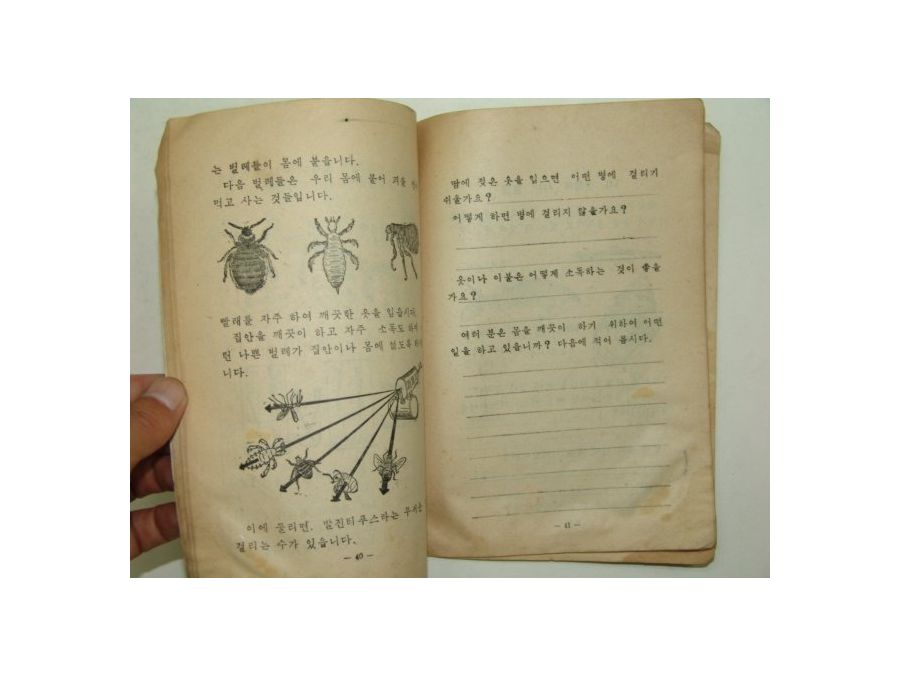 는 벌레들이 몸에 붙습니다.
다음 벌레들은 우리 몸에 붙어 피를
먹고 사는 것들입니다.
빨래를 자주 하여 깨끗한 옷을 입읍시다.
집안을 깨끗이 하고 자주 소독도 하여
런 나쁜 벌레가 집안이나 몸에
니다.
이에 물리면, 발진티푸스라는 무서운
걸리는 수가 있습니다.
— 40 —
땀에 젖은 옷을 입으면 어떤 병에 걸리기
쉬울가요?
어떻게 하면 병에 걸리지 않을가요?
옷이나 이불은 어떻게 소독하는 것이 좋을
가요?
여러 분은 몸을 깨끗이 하기 위하여 어떤
일을 하고 있습니까? 다음에 적어 봅시다.
— 41 —